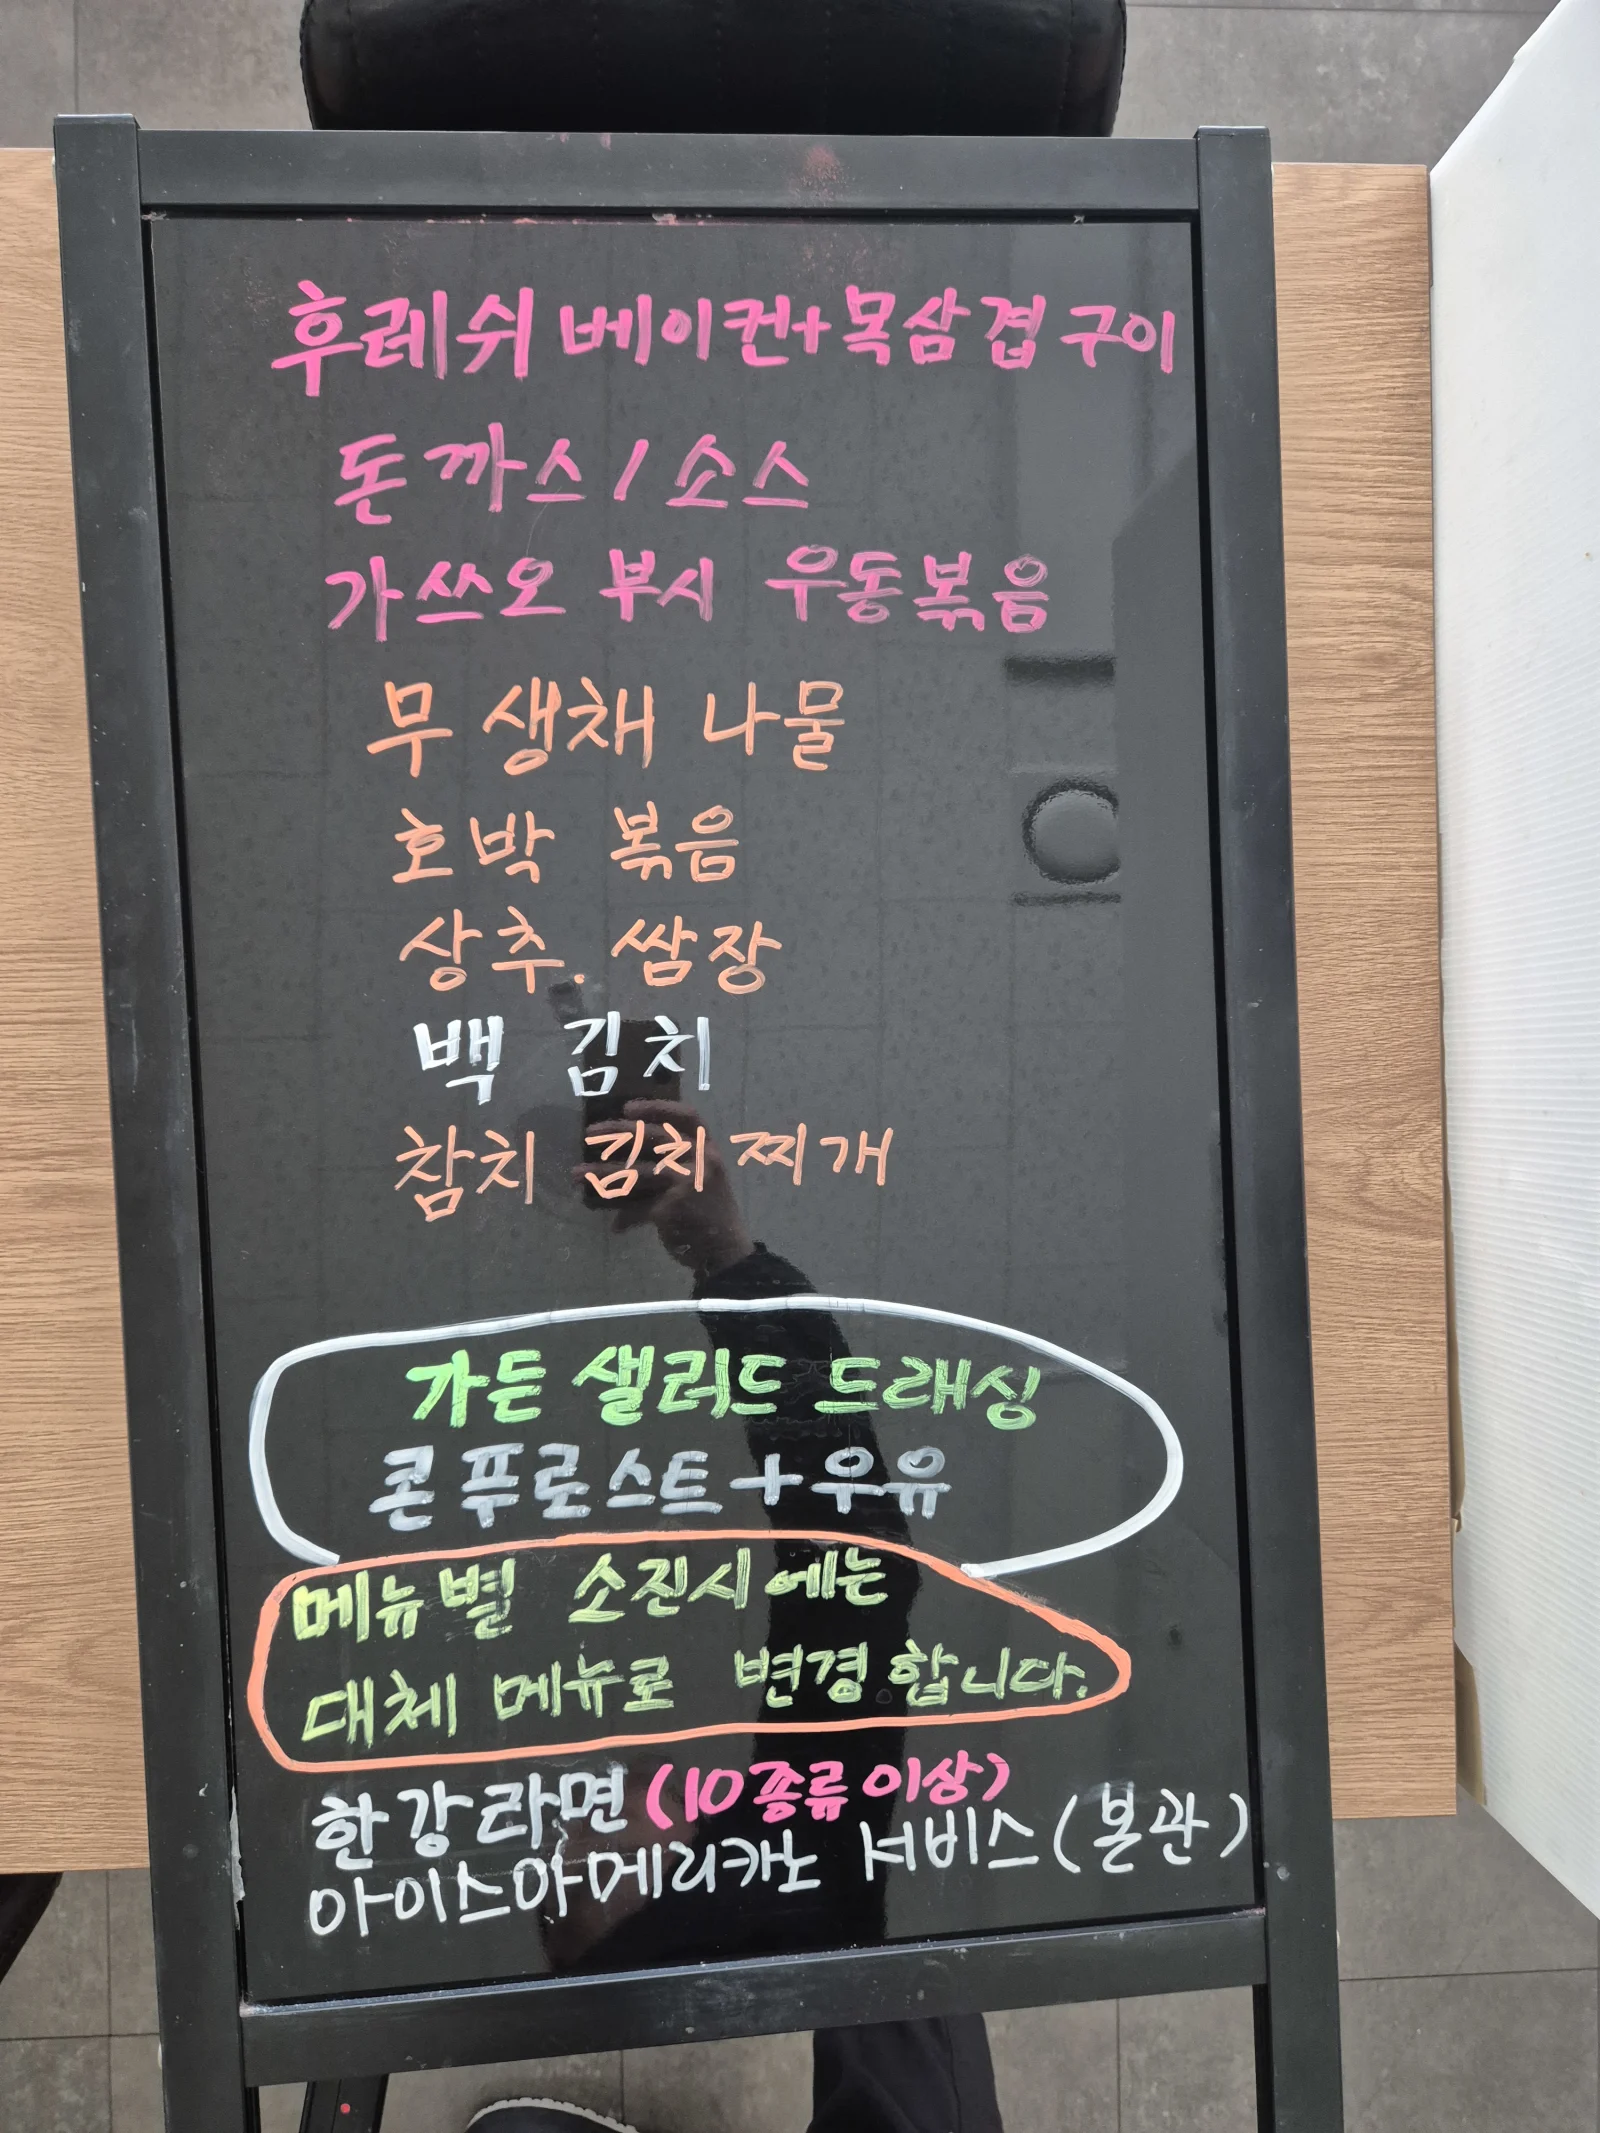 후레쉬 베이컨+목삼겹 구이
돈까스 / 소스
가쓰오 부시 우동볶음
무 생채 나물
호박 볶음
상추. 쌈장
백 김치
참치 김치 찌개
가든 샐러드 드래싱
콘 푸로스트+우유
메뉴별 소진시에는
대체 메뉴로 변경합니다.
한강라면 (10종류 이상)
아이스아메리카노 서비스 (본관)